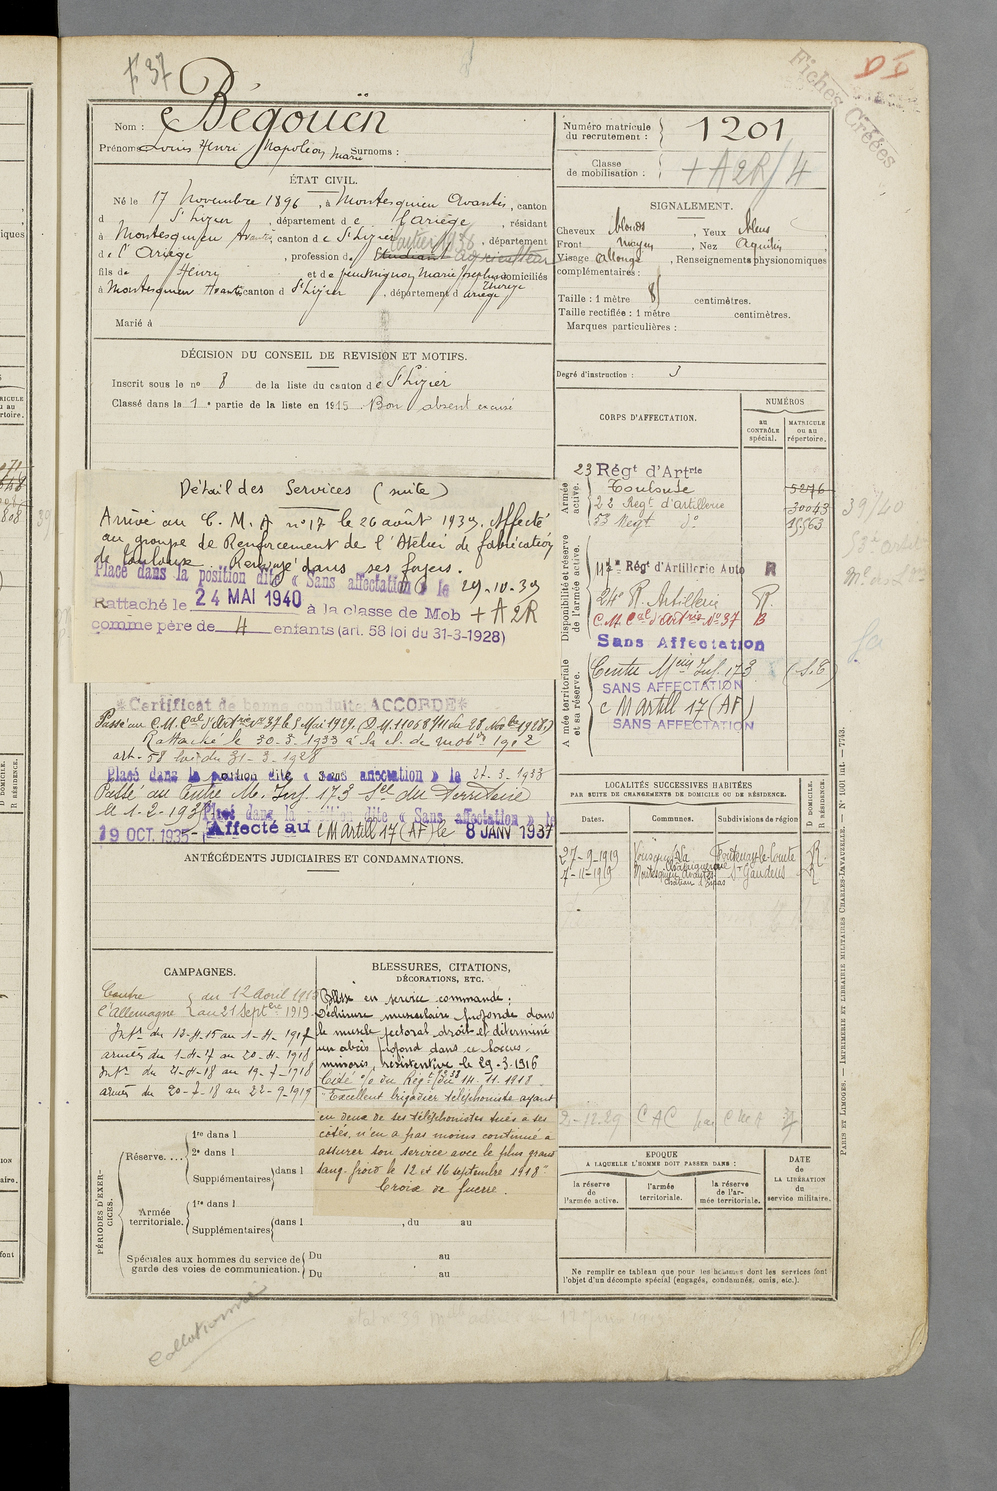 F 37
D
Fiches Créées
Nom : Bégouën
Prénoms : Louis Henri Napoléon Marie Surnoms :
ÉTAT CIVIL.
Né le 17 Novembre 1896, à Montesquieu Avantès, canton
d St Lizier, département de l'Ariège, résidant
à Montesquieu Avantès canton de St Lizier, département
de l'Ariège, profession d Etudiant agriculteur
fils de Henri et de Marie Josephine Thérèse domiciliés
à Montesquieu Avantès canton d St Lizier, département d Ariège
Marié à
DÉCISION DU CONSEIL DE REVISION ET MOTIFS.
Inscrit sous le n° 8 de la liste du canton de St Lizier
Classé dans la 1e partie de la liste en 1915. Bon absent excusé
Détail des Services (suite)
Arrivé au C. M. A n° 17 le 26 août 1939. Affecté
au groupe de Renforcement de l'Atelier de fabrication
de Toulouse. Renvoyé dans ses foyers.
Placé dans la position dite « Sans affectation » le 29-10-39
Rattaché le 24 MAI 1940 à la classe de Mob + A2R
comme père de 4 enfants (art. 58 loi du 31-3-1928)
*Certificat de bonne conduite ACCORDÉ*
Passé au C.M. Cal d'Artrie n° 37 le 5 Mai 1929. (D.M. 11068 du 28 Nobre 1928)
Rattaché le 30-3-1933 à la cl. de mobon 1912
art. 58 loi du 31-3-1928
Placé dans la position dite « sans affectation » le 27-3-1933
Passé au Centre M. Inf. 173 Son du Territoire
le 1-2-193
Placé dans la position dite « Sans affectation » le
19 OCT. 1935 - Affecté au C M Artill 17 (AF) le 8 JANV 1937
ANTÉCÉDENTS JUDICIAIRES ET CONDAMNATIONS.
CAMPAGNES.
Contre l'Allemagne du 12 Avril 1915
au 21 Septbre 1919.
Intr du 12-4-15 au 1-4-1917
armées du 1-4-17 au 20-4-1918
Intr du 21-4-18 au 19-7-1918
armées du 20-7-18 au 22-9-1919
BLESSURES, CITATIONS,
DÉCORATIONS, ETC.
Blessé en service commandé :
Déchirure musculaire profonde dans
le muscle pectoral droit et déterminé
un abcès profond dans ce locus
minoris resistentiae le 29-3-1916
Cité o/o du Régt n° 238 du 14.11.1918.
"Excellent brigadier téléphoniste ayant
eu deux de ses téléphonistes tués à ses
côtés, n'en a pas moins continué à
assurer son service avec le plus grand
sang-froid le 12 et 16 septembre 1918"
Croix de guerre.
PÉRIODES D'EXERCICES.
Réserve....
1re dans l
2e dans l
Supplémentaires dans l
Armée territoriale.
1re dans l
Supplémentaires dans l , du au
Spéciales aux hommes du service de
garde des voies de communication.
Du au
Du au
Collationné
Numéro matricule
du recrutement : 1201
Classe
de mobilisation : + A2R/4
SIGNALEMENT.
Cheveux blonds, Yeux bleus
Front moyen, Nez Aquilin
Visage allongé, Renseignements physionomiques
complémentaires :
Taille : 1 mètre 81 centimètres.
Taille rectifiée : 1 mètre centimètres.
Marques particulières :
Degré d'instruction : 3
CORPS D'AFFECTATION.
NUMÉROS
au CONTRÔLE spécial.
MATRICULE ou au répertoire.
Armée active.
23 Régt d'Artrie
Toulouse 5276
22 Regt d'artillerie 30043
53 Regt do 15563
Disponibilité et réserve de l'armée active.
117e Régt d'Artillerie Auto R
24e R. Artillerie R.
C.M. Cal d'Artrie No 37 B
Sans Affectation
Armée territoriale et sa réserve.
Centre Mem Inf. 173 (S.T)
SANS AFFECTATION
C M Artill 17 (AF)
SANS AFFECTATION
39/40
LOCALITÉS SUCCESSIVES HABITÉES
PAR SUITE DE CHANGEMENTS DE DOMICILE OU DE RÉSIDENCE.
Dates. Communes. Subdivisions de région D DOMICILE. R RÉSIDENCE.
27-9-1919 Fontenay-le-Comte R.
7-11-1919 Montesquieu Avantès St Gaudens R
EPOQUE
A LAQUELLE L'HOMME DOIT PASSER DANS :
la réserve de l'armée active.
l'armée territoriale.
la réserve de l'armée territoriale.
DATE
de
LA LIBÉRATION
du
service militaire.
Ne remplir ce tableau que pour les hommes dont les services font
l'objet d'un décompte spécial (engagés, condamnés, omis, etc.).
PARIS ET LIMOGES. — IMPRIMERIE ET LIBRAIRIE MILITAIRES CHARLES-LAVAUZELLE. — N° 1001 int. — 7743.